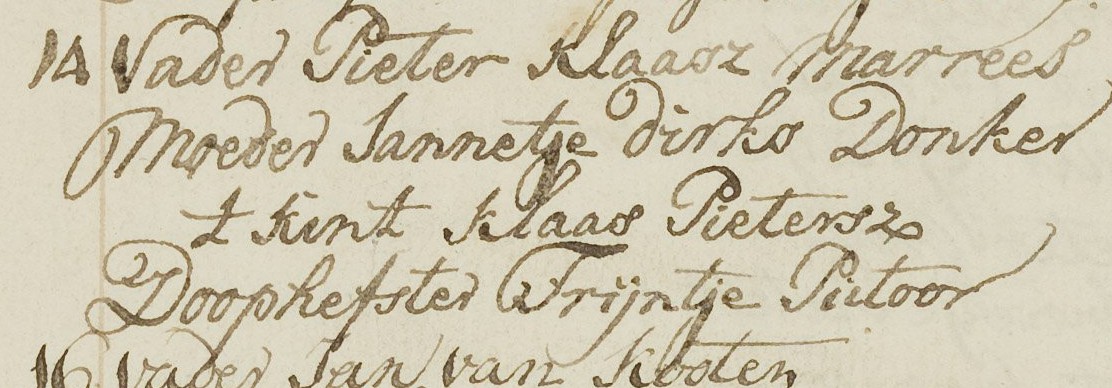 14 Vader Pieter Klaasz Marrees
Moeder Jannetje dirks Donker
t kint Klaas Pietersz
Doophefster Trijntje Putoor
16 vader Jan van Kooten